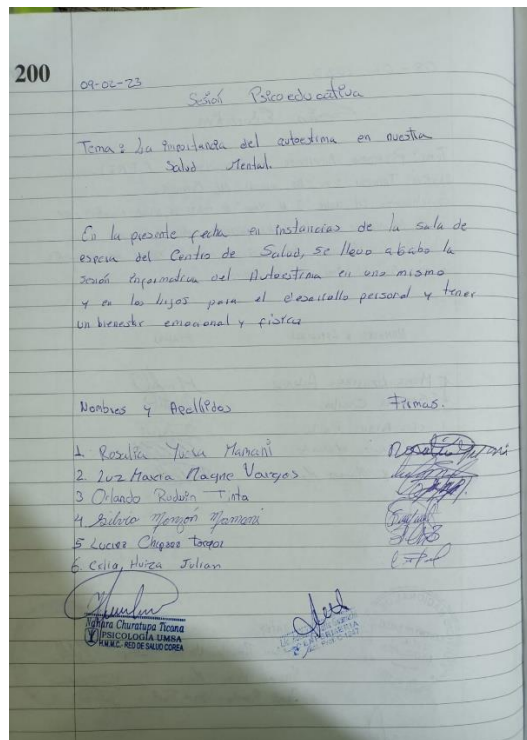 200
09-02-23
Sesión Psicoeducativa
Tema: La importancia del autoestima en nuestra
Salud Mental.
En la presente fecha en instancias de la sala de
espera del Centro de Salud, se llevo acabo la
sesión informativa del Autoestima en uno mismo
y en los hijos para el desarrollo personal y tener
un bienestar emocional y física
Nombres y Apellidos Firmas.
1. Rosalia Mamani
2. Luz Maria Magne Vargas
3 Orlando Tinta
4 Silvia Monzón Mamani
5
6. Celia Huiza Julian
Nahara Churatupa Ticona
PSICOLOGÍA UMSA
H.M.M.C. - RED DE SALUD COREA